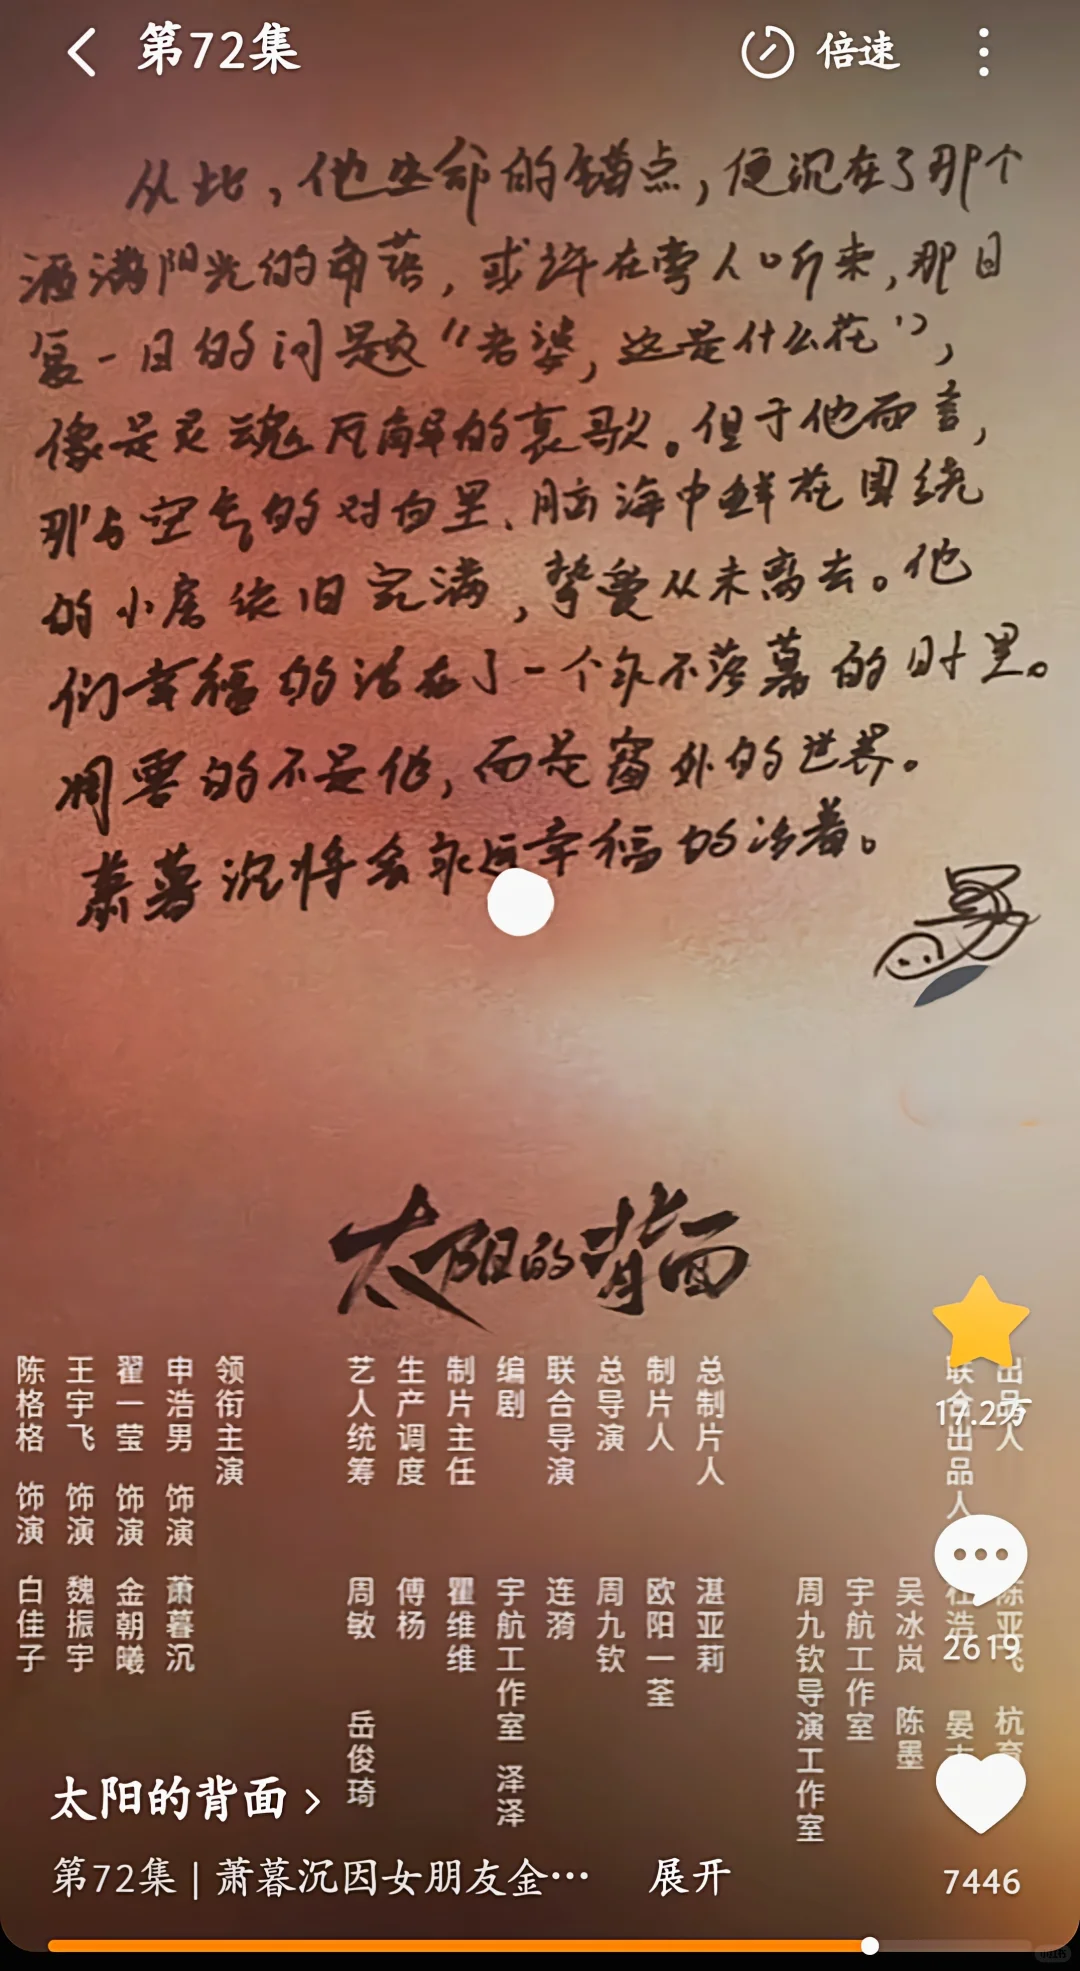 第72集
倍速
从此，他生命的锚点，便沉在了那个
洒满阳光的角落，或许在旁人听来，那日
复一日的问题“老婆，这是什么花”，
像是灵魂瓦解的哀歌。但于他而言，
那与空气的对白里、脑海中鲜花围绕
的小屋依旧完满，挚爱从未离去。他
们幸福的活在了一个永不落幕的时里。
凋零的不是他，而是窗外的世界。
萧暮沉将会永远幸福的活着。
太阳的背面
出品人
联合出品人
吴冰岚 陈墨
宇航工作室
周九钦导演工作室
总制片人 湛亚莉
制片人 欧阳一荃
总导演 周九钦
联合导演 连漪
编剧 宇航工作室 泽泽
制片主任 瞿维维
生产调度 傅杨
艺人统筹 周敏 岳俊琦
领衔主演
申浩男 饰演 萧暮沉
翟一莹 饰演 金朝曦
王宇飞 饰演 魏振宇
陈格格 饰演 白佳子
17.2万
2619
7446
太阳的背面 >
第72集 | 萧暮沉因女朋友金… 展开